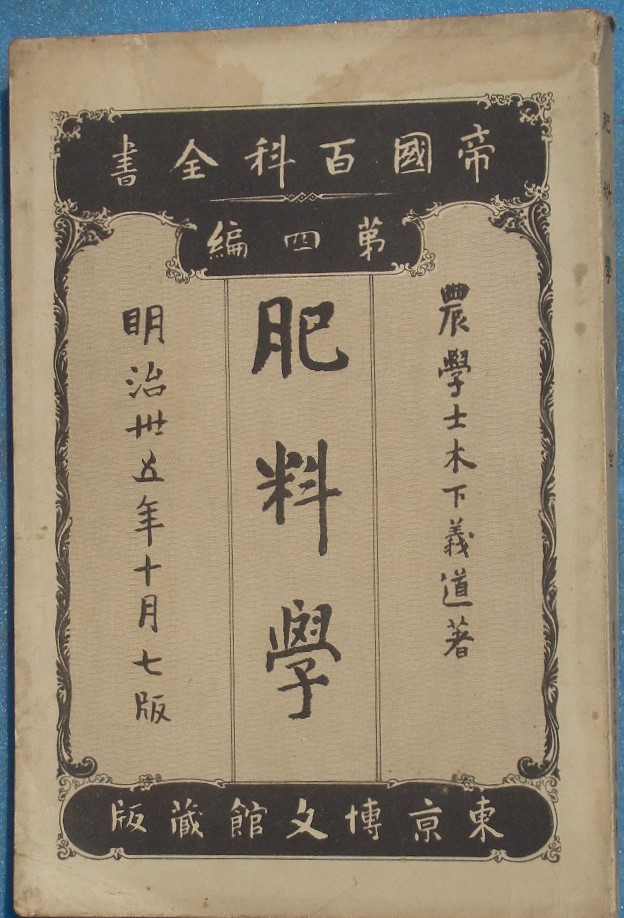 帝國百科全書
第四編
農學士木下義道著
肥料學
明治卅五年十月七版
東京博文館藏版
肥料學
全